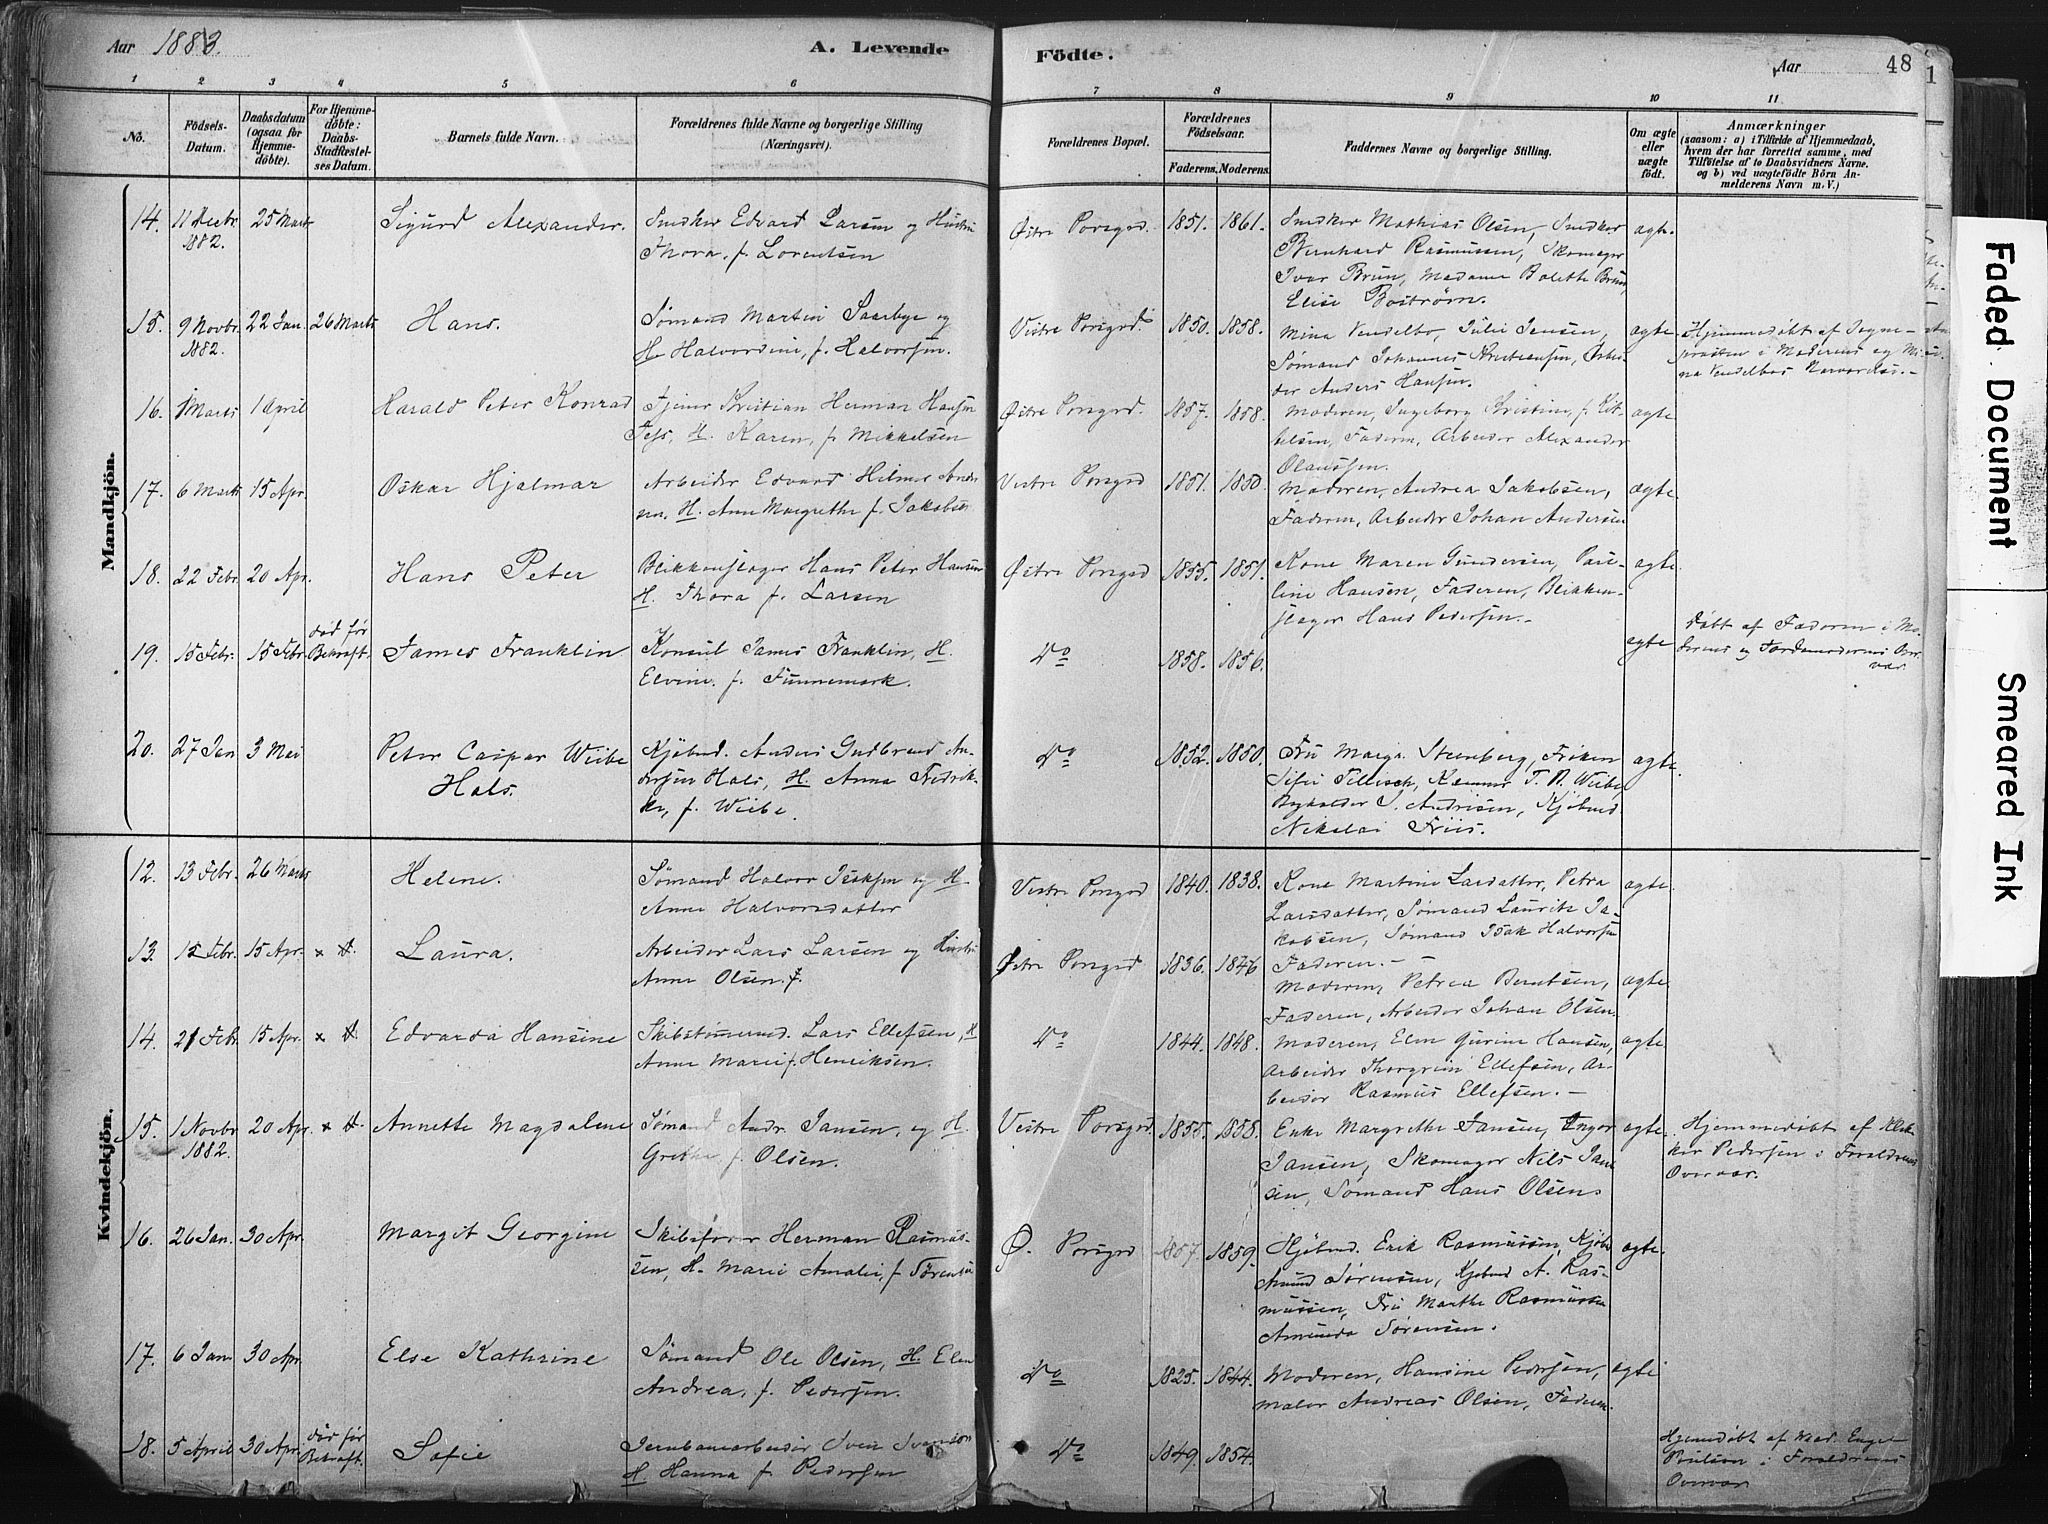 Aar 1883.
A. Levende
Födte.
Aar
48
1 2 3 4 5 6 7 8 9 10 11
No.
Födsels-
Datum.
Daabsdatum
(ogsaa for
Hjemme-
döbte).
For Hjemme-
döbte:
Daabs-
Stadfæstel-
ses Datum.
Barnets fulde Navn.
Forældrenes fulde Navne og borgerlige Stilling
(Næringsvei).
Forældrenes Bopæl.
Forældrenes
Födselsaar.
Faderens. Moderens.
Faddernes Navne og borgerlige Stilling.
Om ægte
eller
uægte
födt.
Anmærkninger
(saasom: a) i Tilfælde af Hjemmedaab,
hvem der har forrettet samme, med
Tilföielse af to Daabsvidners Navne.
og b) ved uægtefödte Börn An-
melderens Navn m. V.)
Mandkjön.
14. 11 Decbr 1882. 25 Marts Sigurd Alexander. Snedker Edvard Larsen og Hustru
Thora, f. Lorentsen
Østre Porsgrd. 1851. 1861. Snedker Mathias Olsen, Snedker
Bernhard Rasmussen, Skomager
Ivar Brun, Madame Bolette Brun,
Elise Boström.
ægte.
15. 9 Novbr. 1882. 22 Jan. 26 Marts Hans. Sømand Martin Saarbye og
H. Halvordine, f. Halvorsen.
Vestre Porsgrd. 1850. 1858. Mina Vendelbo, Julie Jensen,
Sømand Johannes Kristiansen, Arbei-
der Anders Hansen.
ægte
Hjemmedøbt af Sogne-
presten i Moderens og Mi-
na Vendelbos Nærværelse.
16. 1 Marts 1 April Harald Peter Konrad Tjener Kristian Herman Hansen
H. Karen, f. Mikkelsen
Østre Porsgrd. 1857. 1858. Moderen, Ingeborg Kristine, f. Kit-
telsen, Faderen, Arbeider Alexander
Olaussen.
ægte
17. 6 Marts 15 Apr. Oskar Hjalmar Arbeider Edvard Hilmer
H. Anne Margrethe f. Jakobsen
Vestre Porsgrd 1851. 1850. Moderen, Andrea Jakobsen,
Faderen, Arbeider Johan Andersen
ægte
18. 22 Febr. 20 Apr. Hans Peter Blikkenslager Hans Peter Hansen
H. Thora f. Larsen
Østre Porsgrd 1855. 1851. Kone Maren Gundersen, Pau-
line Hansen, Faderen, Blikken-
slager Hans Pedersen.
ægte
19. 15 Febr. 15 Febr. død før
Bekræft. James Franklin Konsul James Franklin, H.
Elvine f. Funnemark.
Do 1858. 1856. ægte
Døbt af Faderen i Mo-
derens og Jordemoderens Over-
vær
20. 27 Jan 3 Mai Peter Caspar Wiibe
Hals.
Kjøbmd. Anders Gudbrand An-
dersen Hals, H. Anna Fredrik-
ke, f. Wiibe.
Do 1852. 1850. Fru Marga. Steenberg, Frøken
Sofie Tellisch, Kemner T. A. Wiibe,
Bogholder S. Andrisen, Kjøbmd
Nikolai Friis.
ægte.
Kvindekjön.
12. 13 Febr. 26 Marts Helene. Sømand Halvor Isaksen og H.
Anne Halvorsdatter
Vestre Porsgrd 1840. 1838. Kone Martine Larsdatter, Petra
Larsdatter, Sømand Lauritz Ja-
kobsen, Sømand Isak Halvorsen
Faderen.
ægte.
13. 15 Febr. 15 Apr. Laura. Arbeider Lars Larsen og Hustru
Anne Olsen.
Østre Porsgrd 1836. 1846 Moderen, Petrea Berntsen,
Faderen, Arbeider Johan Olsen.
ægte
14. 21 Febr. 15 Apr. Edvarda Hansine Skibstømmermd. Lars Ellefsen, H
Anne Marie f. Henriksen.
Do 1844. 1848. Moderen, Elen Gurine Hansen,
Arbeider Thorgrim Ellefsen, Ar-
beider Rasmus Ellefsen.
ægte
15. 1 Novbr 1882. 20 Apr. Annette Magdalene Sømand Andr. Jansen, og H.
Grethe, f. Olsen.
Vestre Porsgrd 1855. 1858. Enke Margrethe Jansen, Inger
Jansen, Skomager Nils Jan-
sen, Sømand Hans Olsen.
ægte.
Hjemmedøbt af Klok-
ker Pedersen i Forældrenes
Overvær.
16. 26 Jan. 30 Apr. Margit Georgine Skibsfører Herman Rasmus-
sen, H. Marie Amalie, f. Sørensen
Ø. Porsgrd 1857. 1859. Kjøbmd. Erik Rasmussen, Kjøbmd
Amund Sørensen, Kjøbmd A. Ras-
mussen, Fru Marthe Rasmussen
Amunda Sørensen.
ægte.
17. 6 Jan 30 Apr. Else Kathrine Sømand Ole Olsen, H. Elen
Andrea, f. Pedersen.
Do 1825. 1844. Moderen, Hansine Pedersen,
Maler Andreas Olsen, Faderen.
ægte
18. 5 April 30 Apr. død før
Bekræft. Sofie Jernbanearbeider Sven Svenson
H. Hanna f. Pedersen
Do 1849. 1854. Hjemmedøbt af Mad. Engel
Poulsen i Forældrenes
Overvær
Faded Document
Smeared Ink